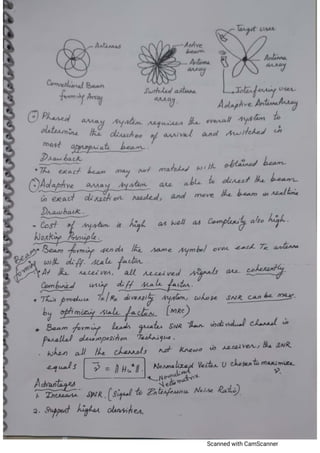 Antennas
Active beam
Antenna array
Target user
Antenna array
Interfering user
Conventional Beam forming Array
Switched antenna array.
Adaptive Antenna Array
Phased array system requires the overall system to
determine the direction of arrival and switched in
most appropriate beam.
Drawback
• The exact beam may not matched with obtained beam
Adaptive array system are able to direct the beam
in exact direction needed, and move the beam in realtime
Drawback
- Cost of system is high as well as Complexity also high.
Working Principle.
Beam forming
• Beam forming sends the same symbol over each Tx antenna
with diff. scale factor.
• At the receiver, all received signals are coherently
Combined using diff scale factor.
• This produce Tx/Rx diversity system, whose SNR can be max.
by optimizing scale factor (MRC)
• Beam forming leads greater SNR than individual channel in
Parallel decomposition Technique.
. When all the channels not known in receiver, the SNR
equals
Normalized Vector U chosen to maximize
Normalized
Advantages
1. Increase SNR. (Signal to Interference Noise Ratio)
2. Support higher densities.
Scanned with CamScanner